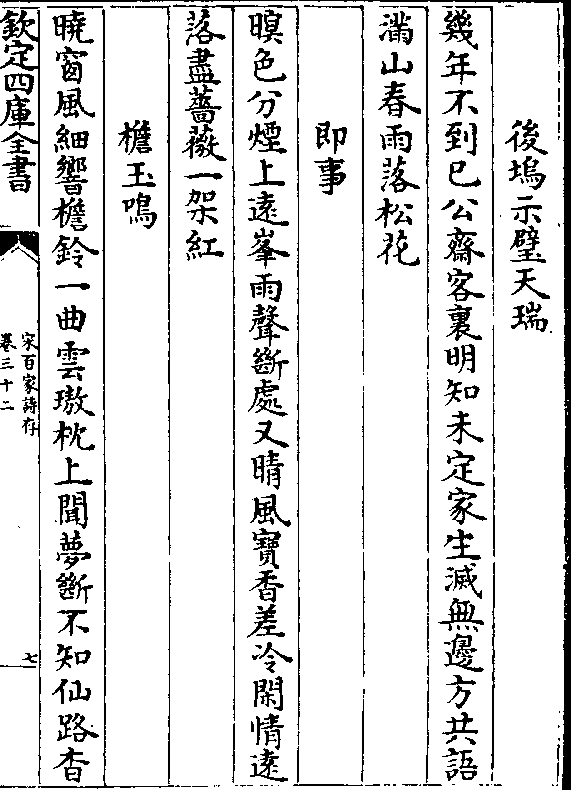 後塢示璧天瑞
幾年不到巳公齋客裏明知未定家生滅無邊方共語
滿山春雨落松花
即事
暝色分煙上遠峯雨聲斷處又晴風寶香差冷閑情遠
落盡薔薇一架紅
檐玉鳴
曉窗風細響檐鈴一曲雲璈枕上聞夢斷不知仙路杳
欽定四庫全書
宋百家詩存
卷三十二
七